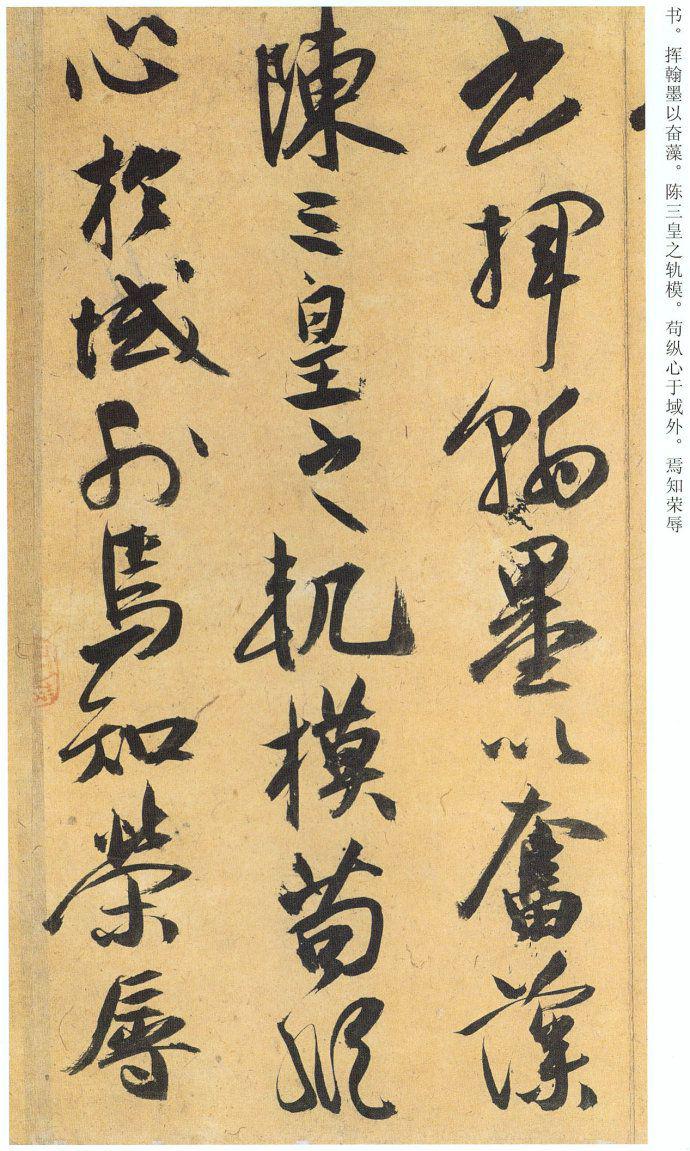 书。挥翰墨以奋藻。陈三皇之轨模。苟纵心于域外。焉知荣辱
书挥翰墨以奮藻
陳三皇之軌模苟縱
心於域外焉知榮辱